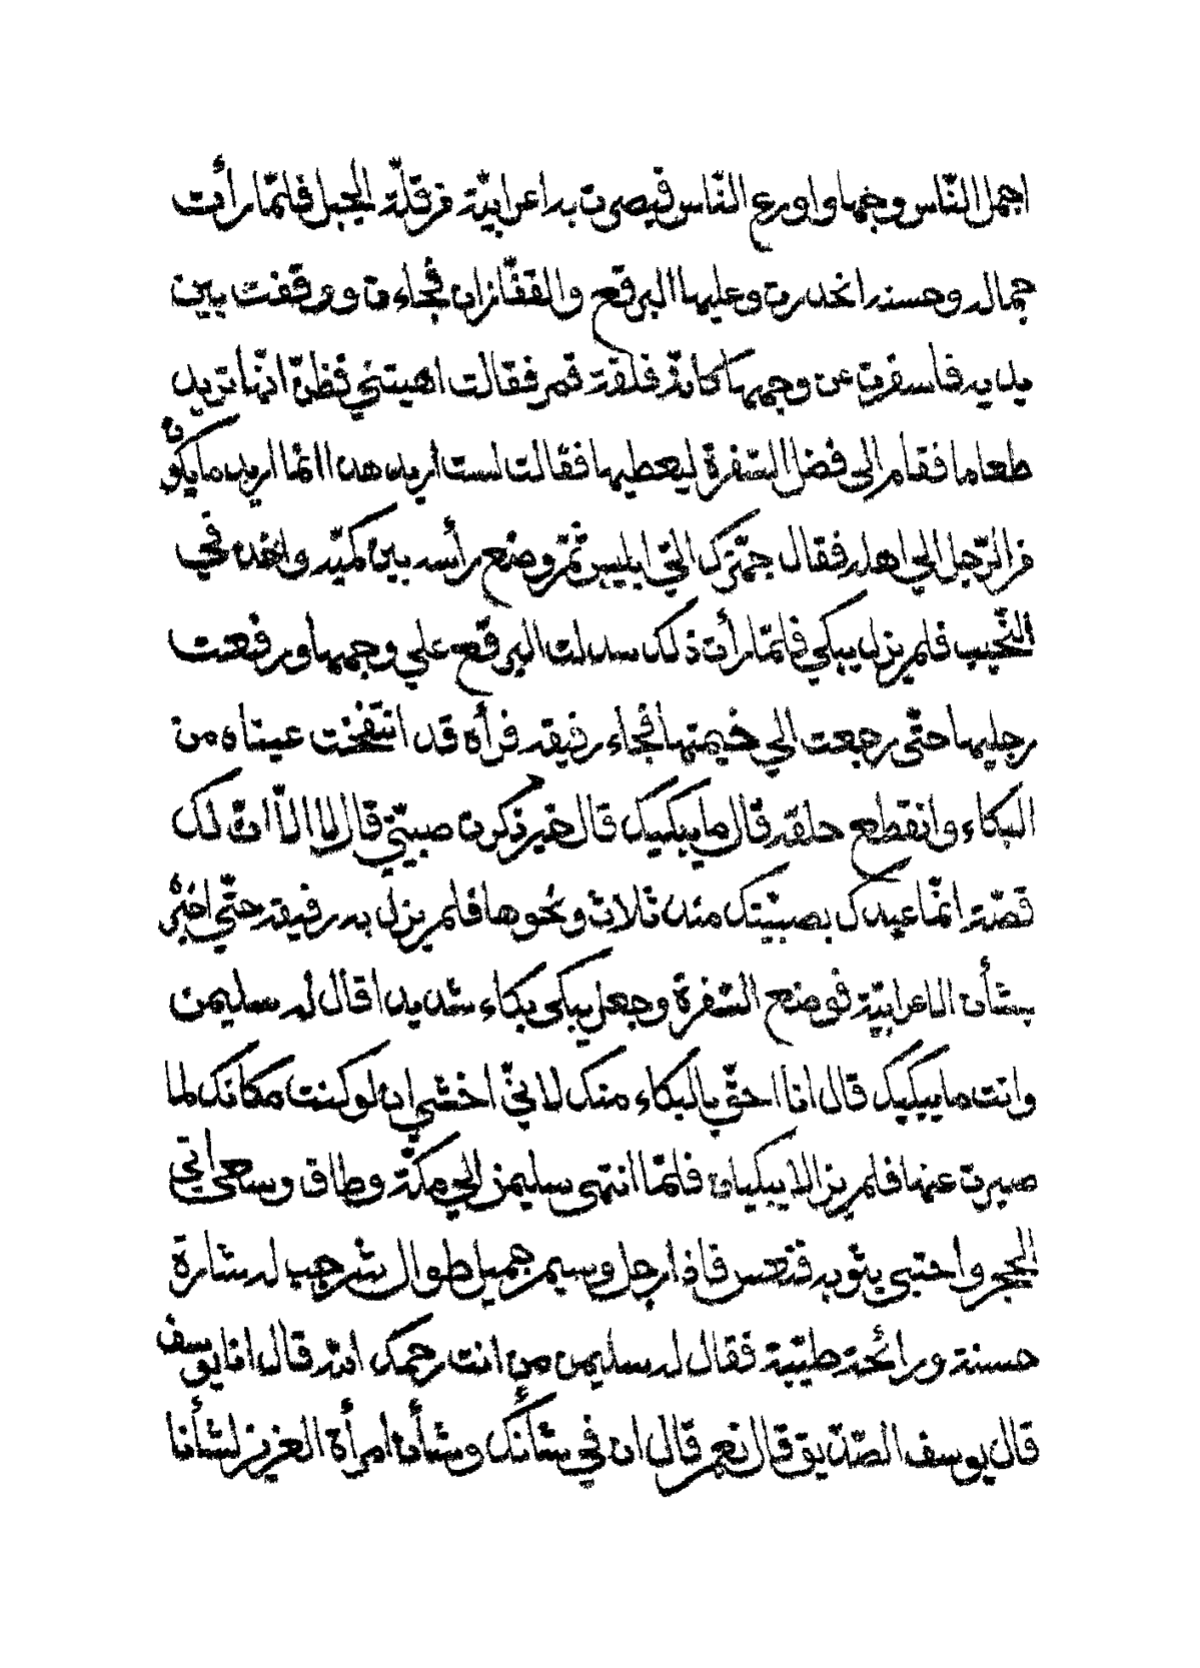 اجمل النّاس وجها واورع النّاس فبصرت به اعرابيّة من قلّة الجبل فلمّا رأت
جماله وحسنه انحدرت وعليها البرقع والقفّازان فجاءت ووقفت بين
يديه فاسفرت عن وجهها كانّه فلقة قمر فقالت اهبتني فظنّ انّها تريد
طعاما فقام الى فضل السّفرة ليعطيها فقالت لست اريد هذا انما اريد ما يكون
من الرّجل الي اهله فقال جهّزك اليّ ابليس ثمّ وضع رأسه بين كمّيه واخذ في
النّحيب فلم يزل يبكي فلمّا رأت ذلك سدلت البرقع علي وجهها ورفعت
رجليها حتّى رجعت الي خيمتها فجاء رفيقه فرأه قد انتفخت عيناه من
البكاء وانقطع حلقه قال ما يبكيك قال خير ذكرت صبيتي قال لا الاّ انّ لك
قصّة انّما عهدك بصبيتك منذ ثلاث ونحوها فلم يزل به رفيقه حتّي اخبره
بشأن الاعرابيّة فوضع السّفرة وجعل يبكى بكاء شديدا قال له سليمن
وانت ما يبكيك قال انا احقّ بالبكاء منك لانّي اخشي ان لو كنت مكانك لما
صبرت عنها فلم يزالا يبكيان فلمّا انتهى سليمن الي مكّة وطاف وسعى اتي
الحجر واحتبى بثوبه فنعس فاذا رجل وسيم جميل طوال شرجب له شارة
حسنة ورائحة طيّبة فقال له سليمن من انت رحمك الله قال انا يوسف
قال يوسف الصّدّيق قال نعم قال ان في شأنك وشأن امرأة العزيز لشأنا